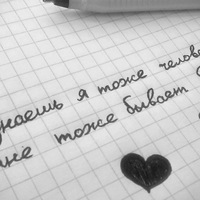 знаешь я тоже челове
мне тоже бывает